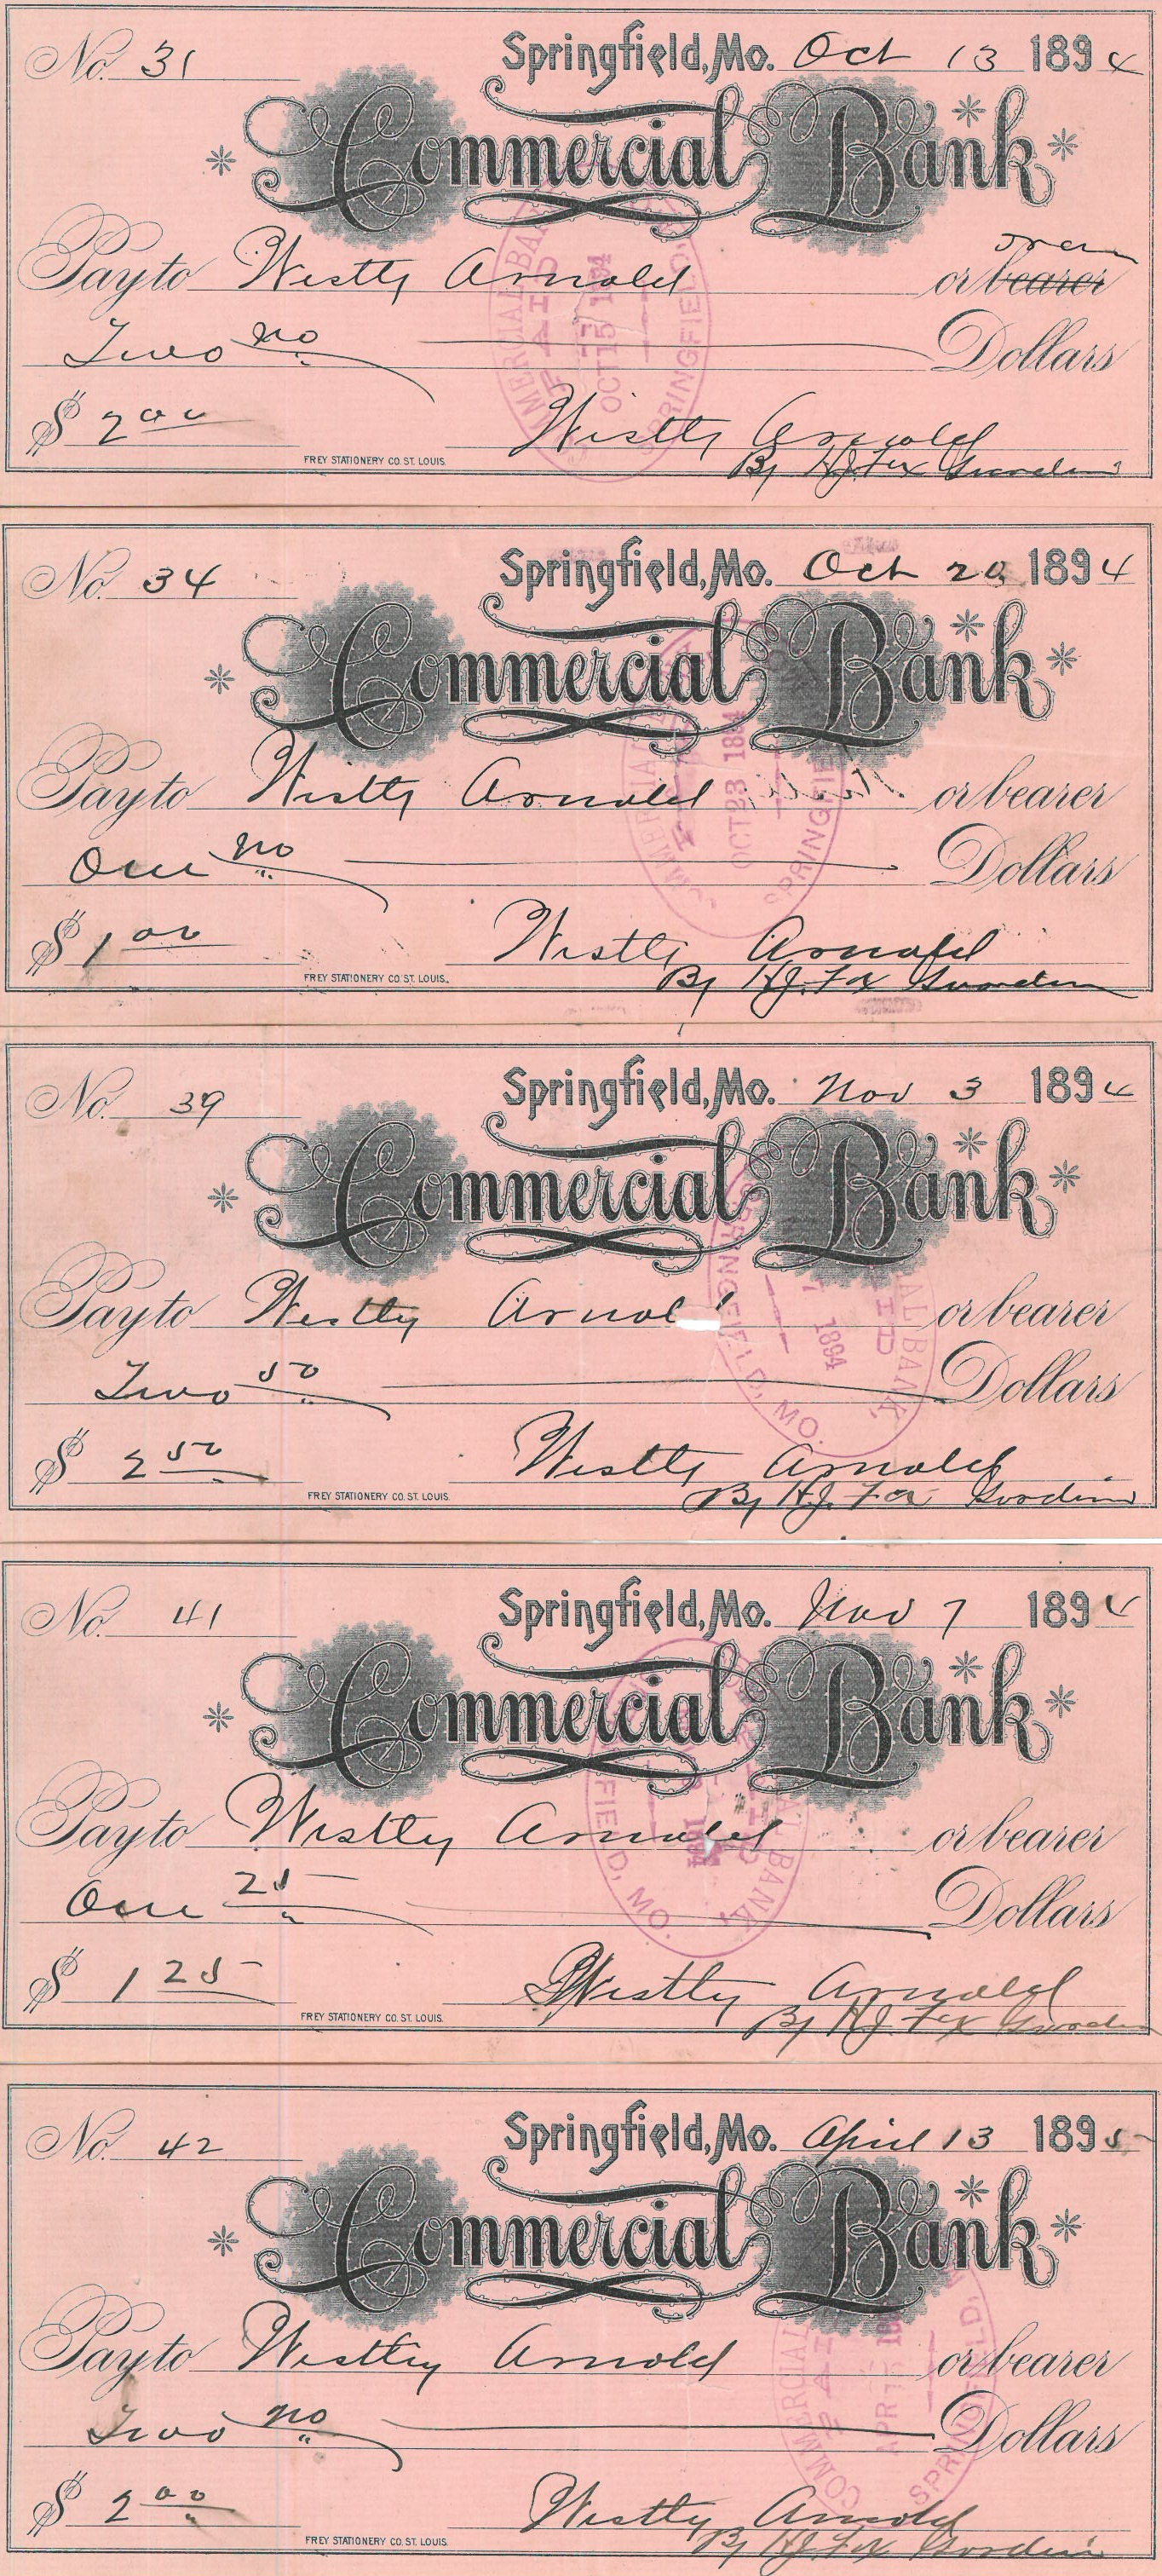 No. 31
Springfield, Mo. Oct 13 1894
Commercial Bank
Pay to Westly Arnold or bearer
Two no Dollars
$ 2 00
Westly Arnold
By H.J. Fox
FREY STATIONERY CO. ST. LOUIS.
COMMERCIAL BANK
PAID
OCT 15 1894
SPRINGFIELD,
No. 34
Springfield, Mo. Oct 20 1894
Commercial Bank
Pay to Westly Arnold or bearer
One no Dollars
$ 1 00
Westly Arnold
By H.J. Fox
FREY STATIONERY CO. ST. LOUIS.
OCT 23 1894
No. 39
Springfield, Mo. Nov 3 1894
Commercial Bank
Pay to Westly Arnold or bearer
Two 50 Dollars
$ 2 50
Westly Arnold
By H.J. Fox
FREY STATIONERY CO. ST. LOUIS.
1894
BANK,
MO.
No. 41
Springfield, Mo. Nov 7 1894
Commercial Bank
Pay to Westly Arnold or bearer
One 25 Dollars
$ 1 25
Westly Arnold
By H.J. Fox
FREY STATIONERY CO. ST. LOUIS.
BANK,
MO.
No. 42
Springfield, Mo. April 13 1895
Commercial Bank
Pay to Westly Arnold or bearer
Two no Dollars
$ 2 00
Westly Arnold
By H.J. Fox
FREY STATIONERY CO. ST. LOUIS.
COMMERCIAL
APR
SPRINGFIELD,